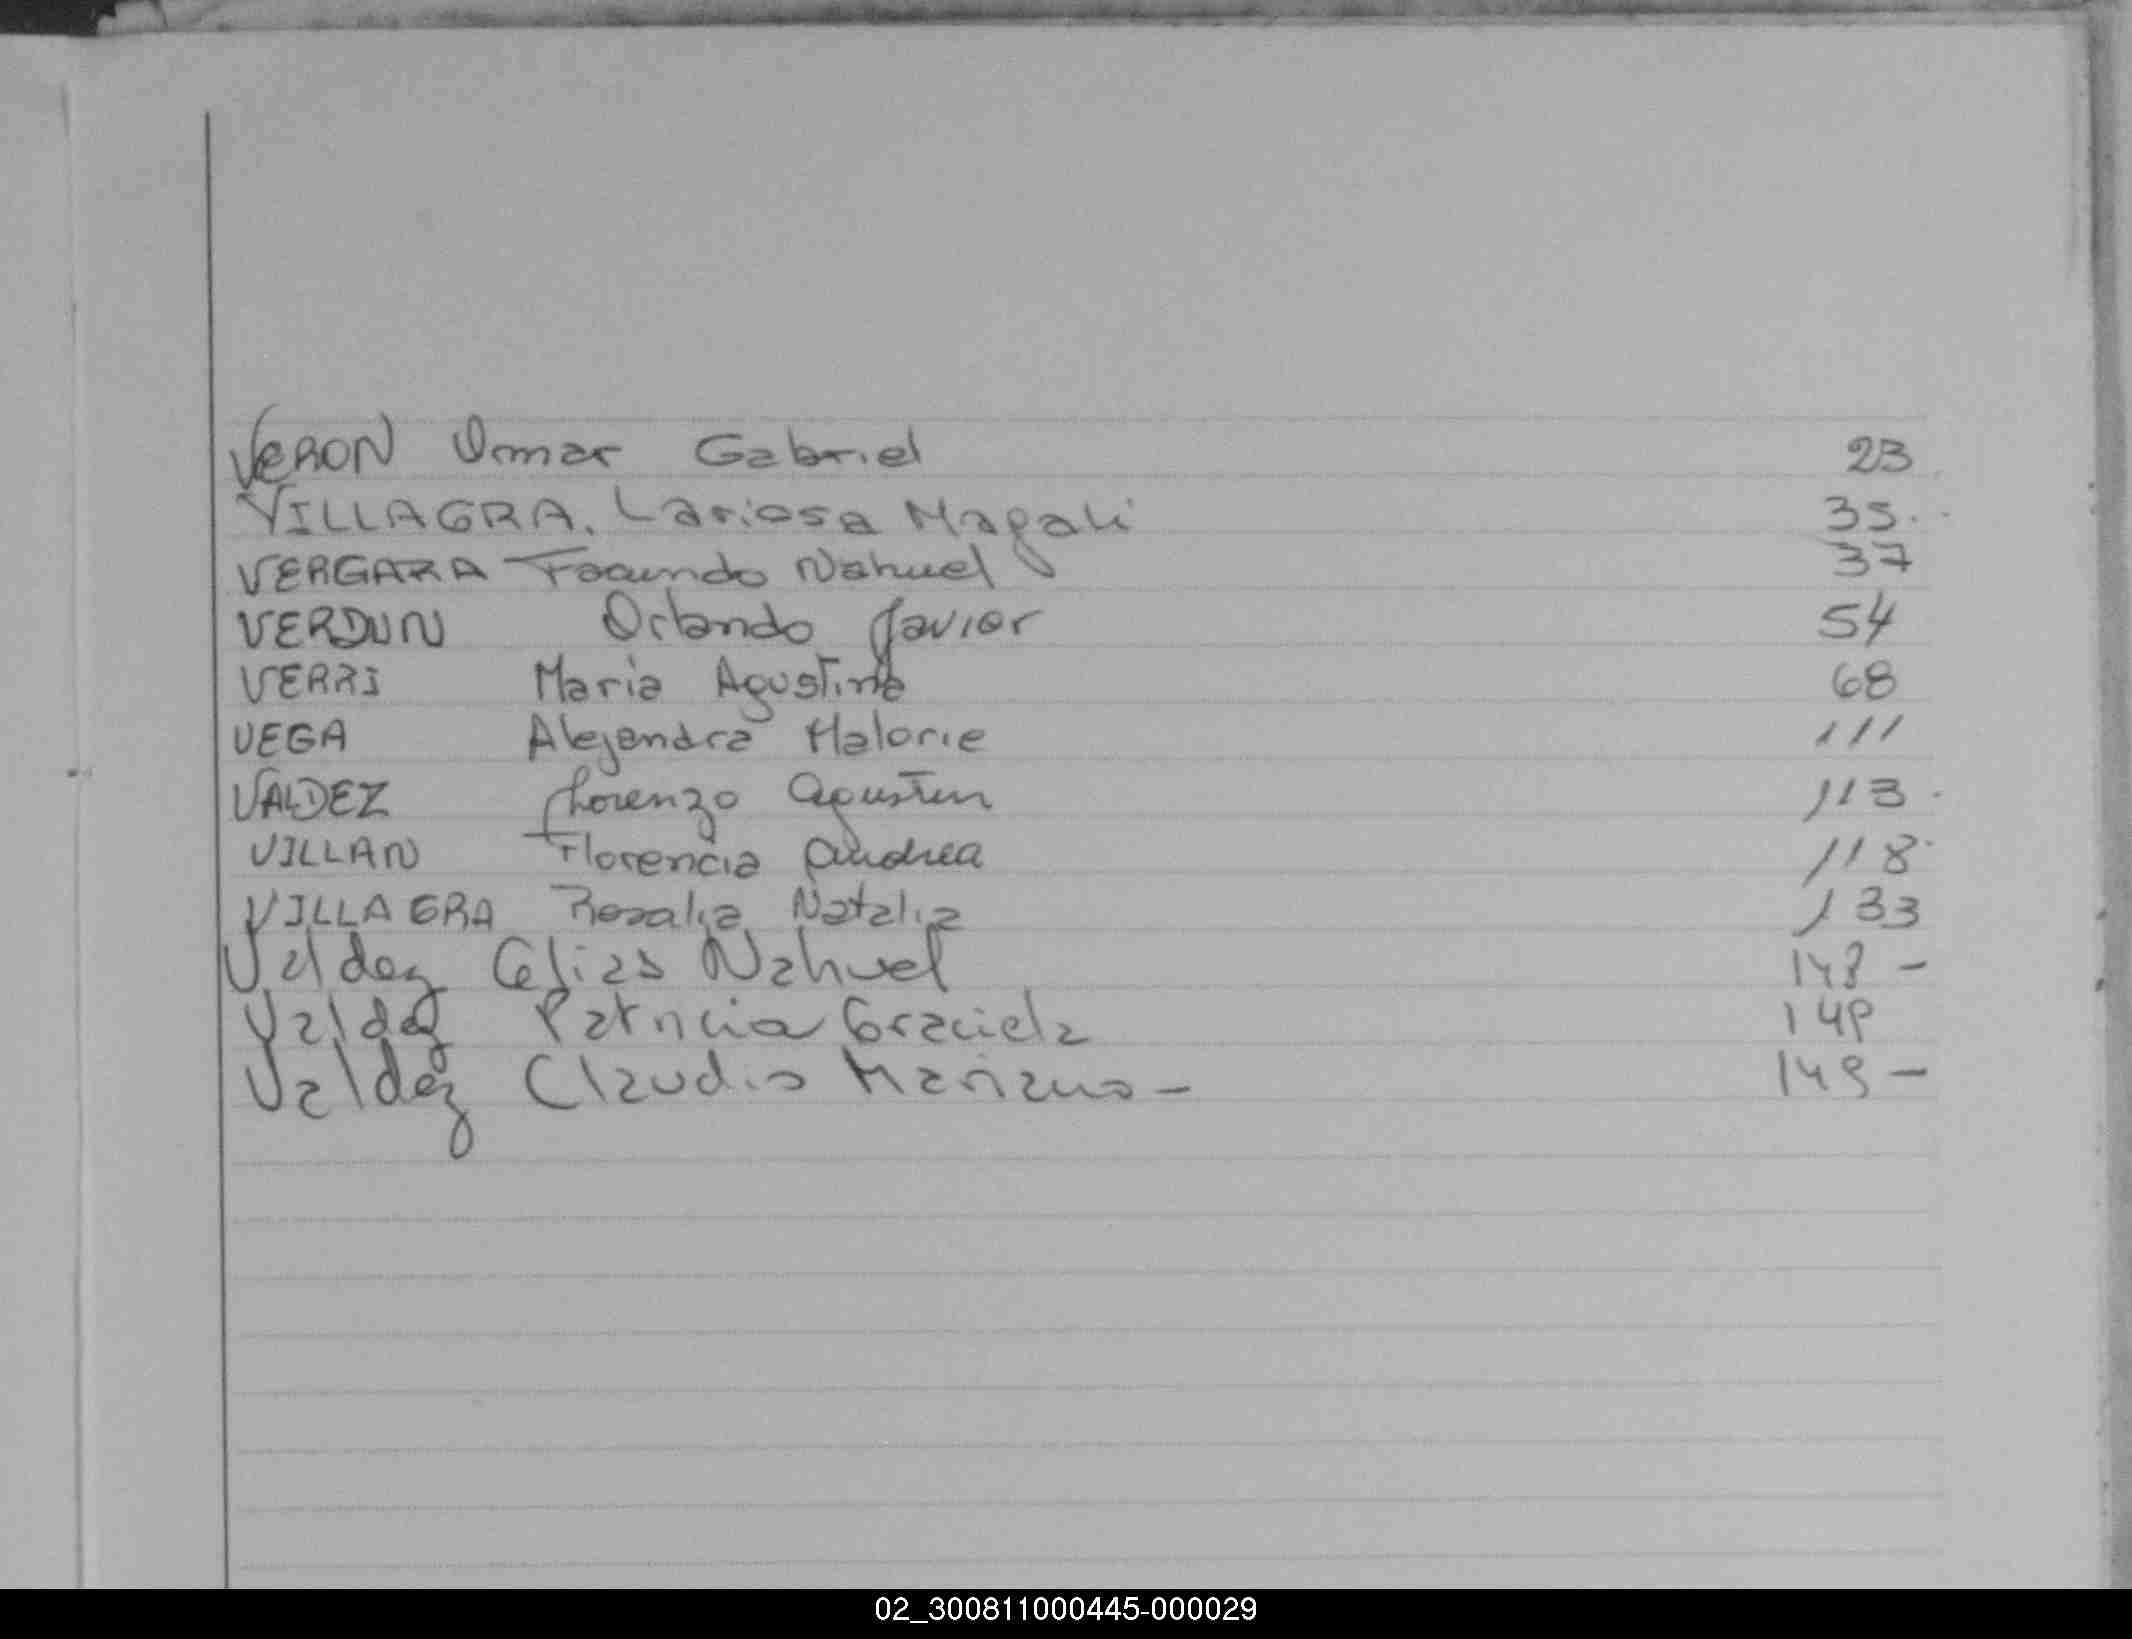 VERON Omar Gabriel 23
VILLAGRA. Lariosa Magali 35.
VERGARA Facundo Nahuel 37
VERDUN Orlando Javier 54
VERRI Maria Agustina 68
VEGA Alejandra Malorie 111
VALDEZ Lorenzo Agustin 113
VILLAN Florencia Andrea 118
VILLAGRA Rosalia Natalia 133
Valdez Nahuel
Valdez Patricia Graciela
Valdez Claudio Mariano - 149 -
02_300811000445-000029